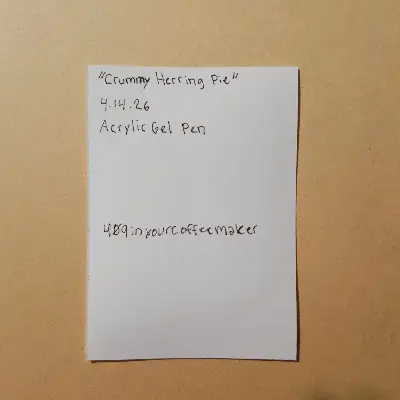 "Crummy Herring Pie"
4.14.26
Acrylic Gel Pen
409inyourcoffeemaker